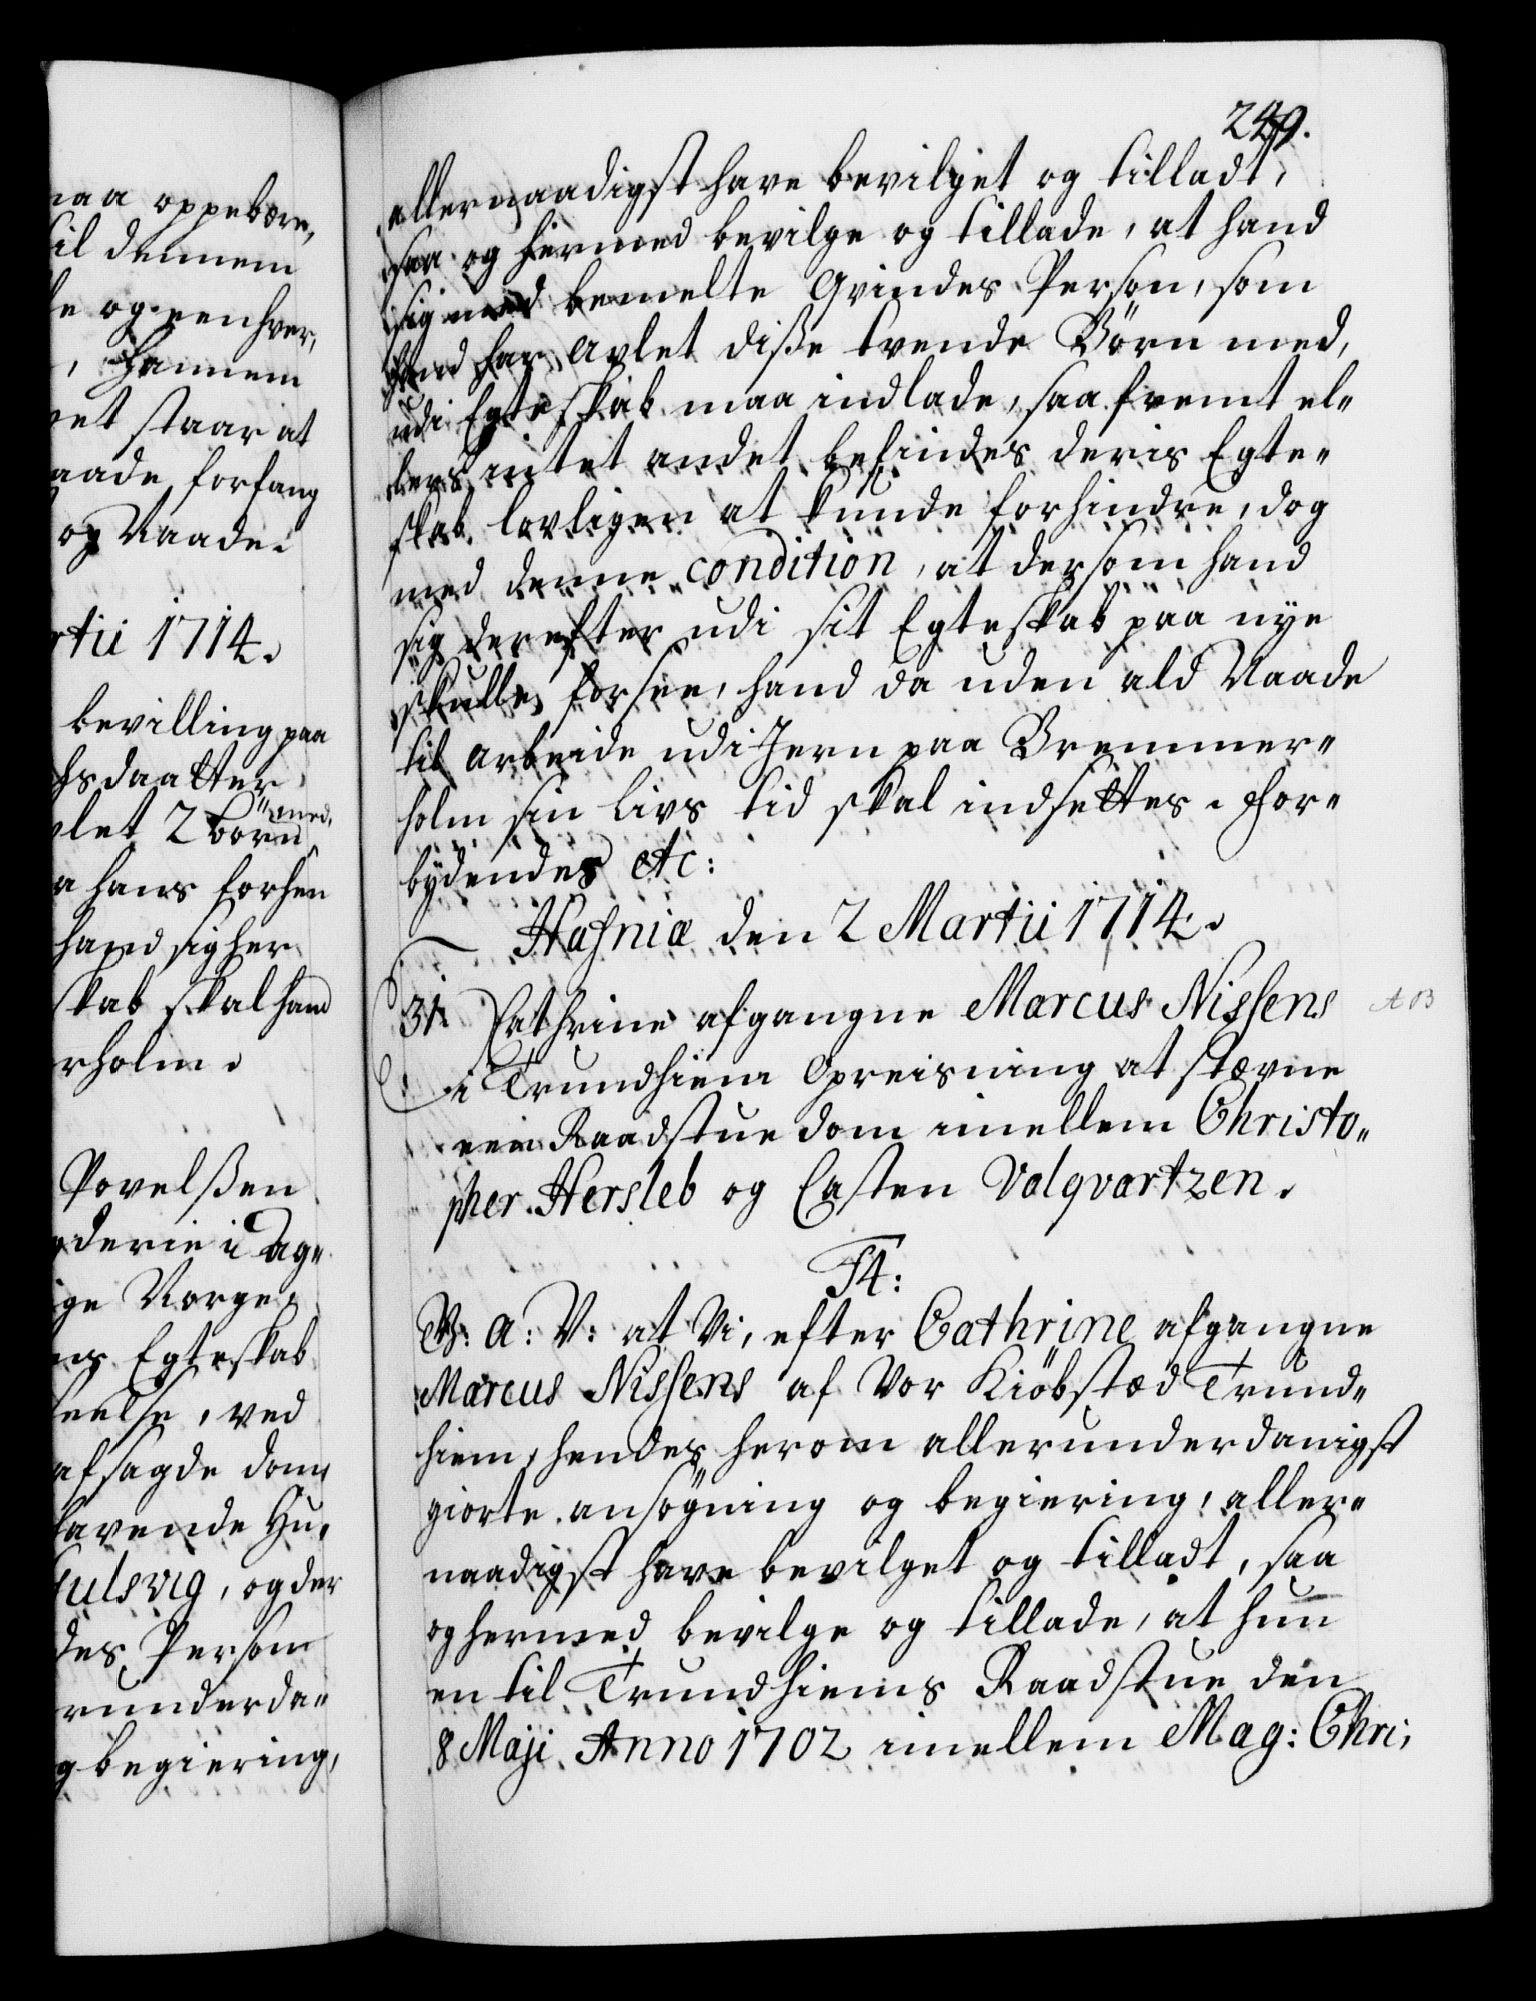 naa oppebære,
til dennem
e og eenhver,
, hannem
et staar at
aade forfang
og Naade.
rtii 1714.
bevilling paa
hsdaatter
med
vlet 2 børn
a hans forhen
hand sig her
skab skal hand
rholm.
Povelßen
derie i Ag„
ge Norge,
ns Egteskab
eelse, ved
afsagde dom
lavende Hu„
fulsvig, og der
des Person
runderda„
g begiering,
249.
allernaadigst have bevilget og tilladt,
saa og hermed bevilge og tillade, at hand
sig med bemelte Qvindes Person, som
hand har avlet diße tvende Børn med,
udi Egteskab maa indlade, saafremt el„
lers intet andet befindes deris Egte„
skab lovligen at kunde forhindre, dog
med denne condition, at dersom hand
sig derefter udi sit Egteskab paa nye
skulle forsee, hand da uden ald Naade
til arbeide udi Jern paa Bremmer„
holm sin livs tid skal indsettes. For„
bydendes etc:
Hafniæ den 2 Martii 1714.
31. Cathrine afgangne Marcus Nissens
AB
i Trundhiem Opreisning at stævne
een Raadstue dom imellem Christo„
pher Hersleb og Casten Valqvartzen.
F4:
G: A: V: at Vi, efter Cathrine afgangne
Marcus Nissens af Vor Kiöbstæd Trund„
hiem, hendes herom allerunderdanigst
giorte ansøgning og begiering, aller„
naadigst have bevilget og tilladt, saa
og hermed bevilge og tillade, at hun
en til Trundhiems Raadstue den
8 Maji Anno 1702 imellem Mag: Chri„